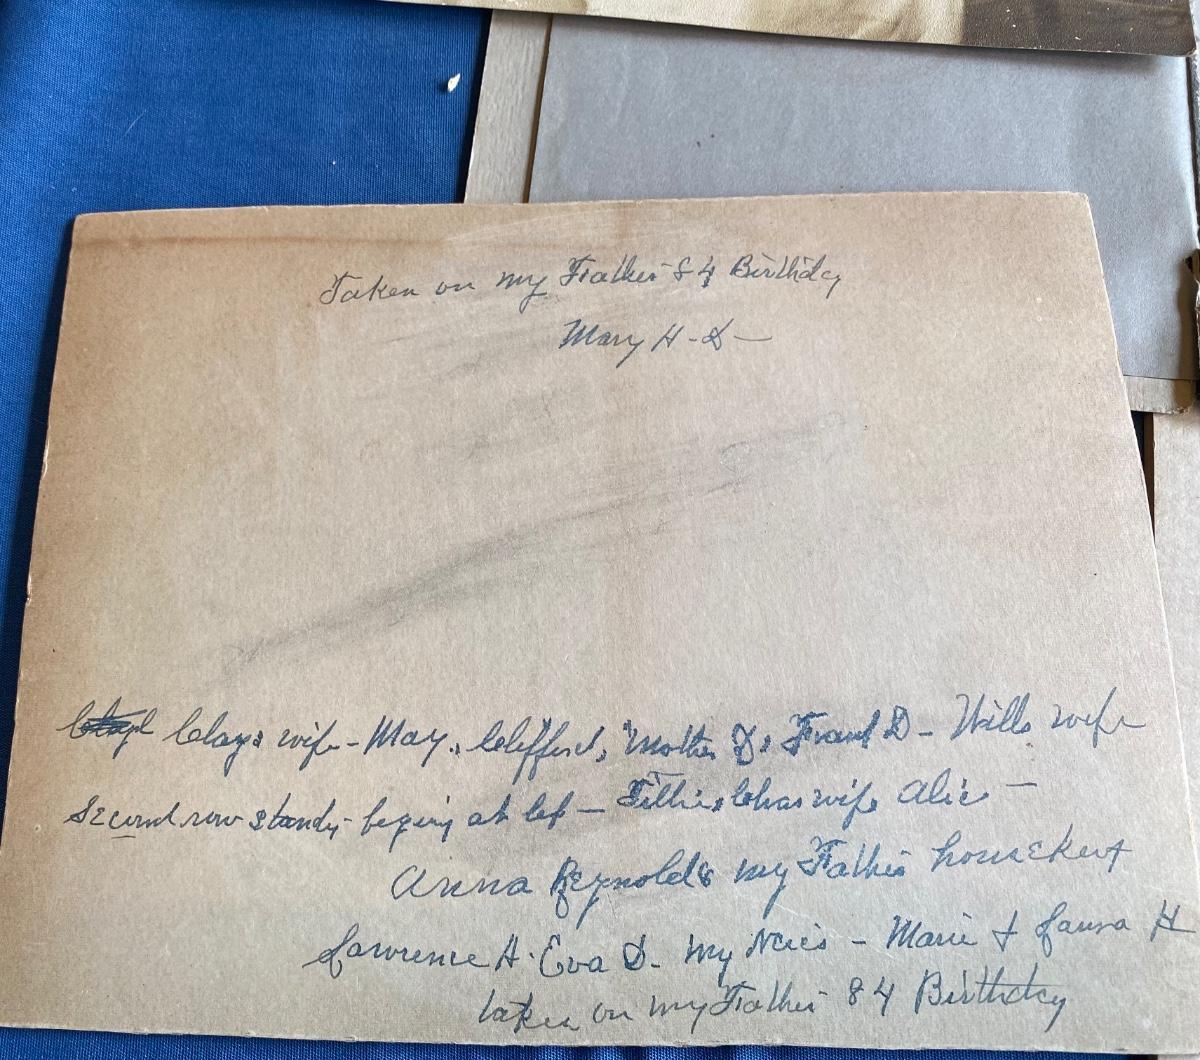 Taken on my Father 84 Birthday
Mary H - D -
Clays wife - May., Clifford, Mother D, Frank D - Wills wife
Second row standy- begining at left - Tillie, Chas wife Alice -
Anna Reynolds my Fathers housekept
Lawrence H. Eva D. my Neices - Marie + Laura H
taken on my Father 84 Birthday